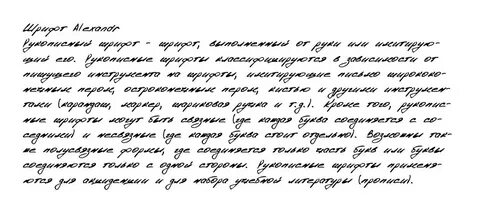 Шрифт Alexandr
Рукописный шрифт - шрифт, выполненный от руки или имитирую-
щий его. Рукописные шрифты классифицируются в зависимости от
пишущего инструмента на шрифты, имитирующие письмо ширококо-
нечным пером, остроконечным пером, кистью и другими инструмен-
тами (карандаш, маркер, шариковая ручка и т.д.). Кроме того, рукопис-
ные шрифты могут быть связные (где каждая буква соединяется с со-
седними) и несвязные (где каждая буква стоит отдельно). Возможны так-
же полусвязные формы, где соединяется только часть букв или буквы
соединяются только с одной стороны. Рукописные шрифты применя-
ются для акциденции и для набора учебной литературы (прописи).